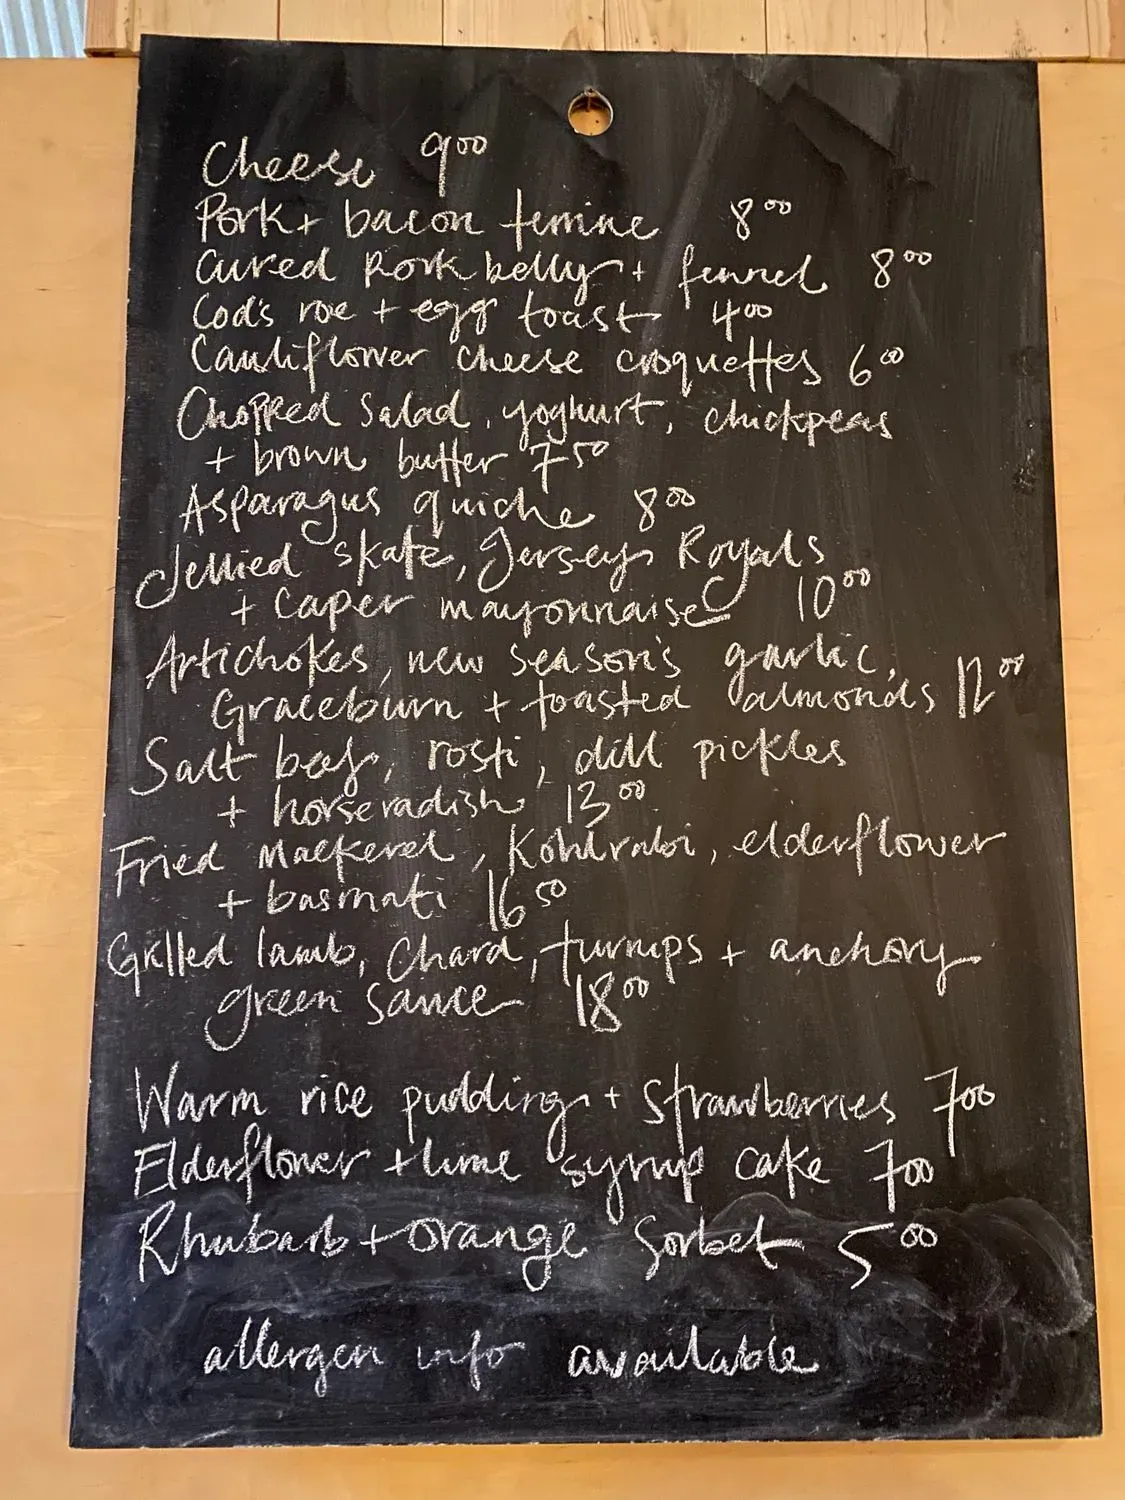 Cheese 9 00
Pork + bacon terrine 8 00
Cured Pork belly + fennel 8 00
Cod's roe + egg toast 4 00
Cauliflower cheese croquettes 6 00
Chopped Salad, yoghurt, chickpeas
+ brown butter 7 50
Asparagus quiche 8 00
Jellied skate, Jersey Royals
+ Caper mayonnaise 10 00
Artichokes, new season's garlic,
Graceburn + toasted almonds 12 00
Salt beef, rosti, dill pickles
+ horseradish 13 00
Fried Mackerel, Kohlrabi, elderflower
+ basmati 16 50
Grilled lamb, Chard, turnips + anchovy
green sauce 18 00
Warm rice pudding + strawberries 7 00
Elderflower + lime syrup cake 7 00
Rhubarb + orange Sorbet 5 00
allergen info available